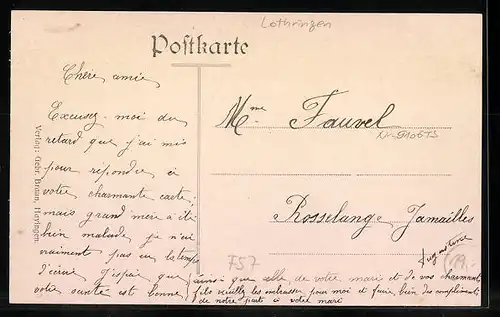 Lothringen
Postkarte
Chère amie
Excusez-moi du
retard que j'ai mis
pour répondre à
votre charmante carte;
mais grand mère a été
bien malade je n'ai
vraiment pas eu le temps
d'écrire J'espère que
votre santé est bonne,
ainsi que celle de votre mari et de vos charmants
fils veuillez les embrasser pour moi et faire bien des compliments
de notre part à votre mari
Mme Fauvel
Rosselange Jamailles
F57
Verlag: Gebr. Braun, Hayingen.